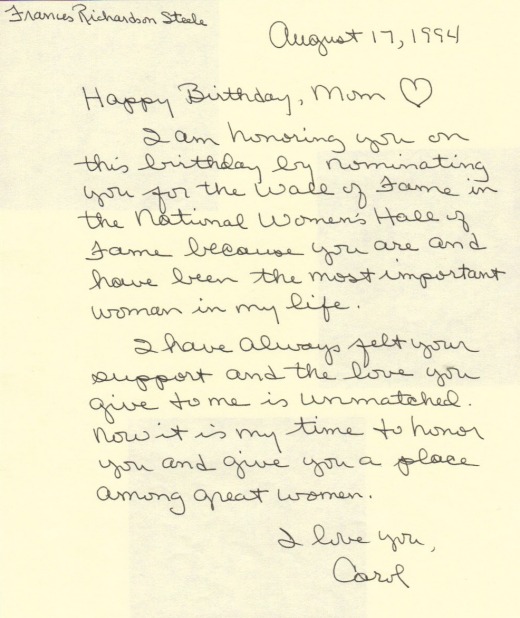 Frances Richardson Steele
August 17, 1994
Happy Birthday, Mom ♡
I am honoring you on
this birthday by nominating
you for the Wall of Fame in
the National Women's Hall of
Fame because you are and
have been the most important
woman in my life.
I have always felt your
support and the love you
give to me is unmatched.
Now it is my time to honor
you and give you a place
among great women.
I love you,
Carol